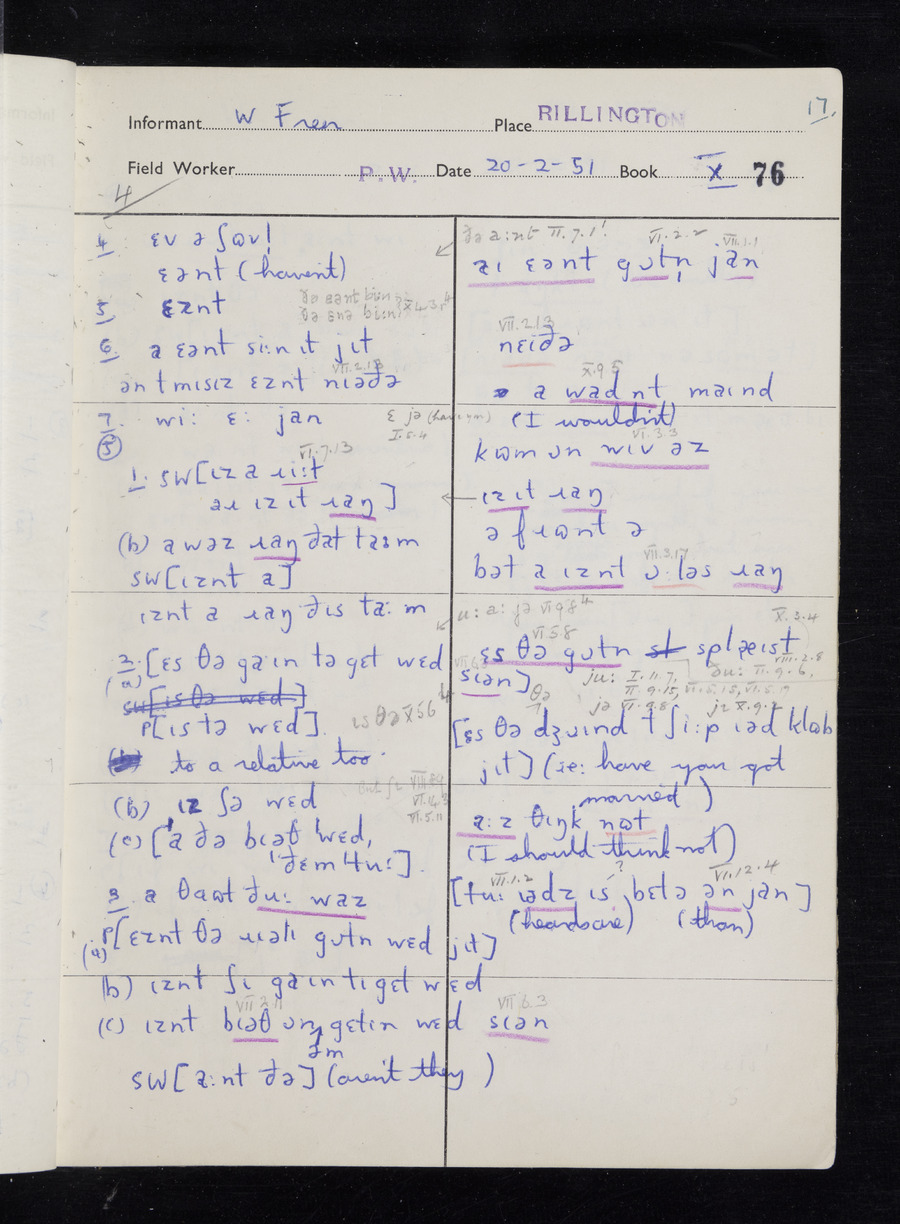 17.
Informant W Fren Place RILLINGTON
Field Worker P.W. Date 20-2-51 Book X 76
4
4. ɛv ə ʃɷv!
ɛənt (havent)
5. ɛznt
6. a ɛənt si:n ɪt jɪt
ənt mɪsɪz ɛznt nɪəðə
VII.2.13
7. wi: ɛ: jan
ɛ jə (have you)
I.5.4
⑤
VI.7.13
1. SW[ɪz a ɹi:t
aɪ ɪz ɪt ɹaŋ]
(b) a wəz ɹaŋ ðat ta:m
SW[ɪznt a]
ɪznt a ɹaŋ ðɪs ta:m
2. [ɛs θə ga·ɪn tə gɛt wɛd
(a)
SW[ɪs θə wɛd]
P[ɪs tə wɛd].
ɪs θə X 5 6
(b) to a relative too
(b) ɪz ʃə wɛd
VI.14.3
VI.5.11
(c) [a ðə bɪəθ wɛd,
ðɛm tu:].
3. a θawt ðu: waz
(a) P[ɛznt θə ɹɪəlɪ gɷtn wɛd jɪt]
(b) ɪznt ʃɪ ga·ɪn tɪ gɛt wɛd
VII.2.11
(c) ɪznt bɪəθ ɒn gɛtɪn wɛd sɪən
əm
VII.6.3
SW[a:nt ðə] (aren't they)
ðə a:nt II.7.1!
VI.2.2 VII.1.1
aɪ ɛənt gɷtn jan
VII.2.13
nɛɪðə
X.9.5
a wadnt maɪnd
(I wouldn't)
VI.3.3
kɷm ɒn wɪv əz
ɪz ɪt ɹaŋ
ə fɹɷnt ə
VII.3.17
bət a ɪznt ɒ:ləs ɹaŋ
X.3.4
VI.5.8
ɛs θə gɷtn st splæɪst
sɪən]
θə
ju: I.11.7, ðu: II.9.6,
II.9.15, VI.5.15, VI.5.17
jə VI.9.8. jɪ X.9.2
[ɛs θə dʒɒɪnd t ʃi:p ɪəd klɷb
jɪt] (ie: have you got
married)
a:z θɪŋk nɒt
(I should think not)
VII.1.2 VII.12.4
[tu: ɪədz ɪs ? bɛtə ən jan]
(heads are) (than)